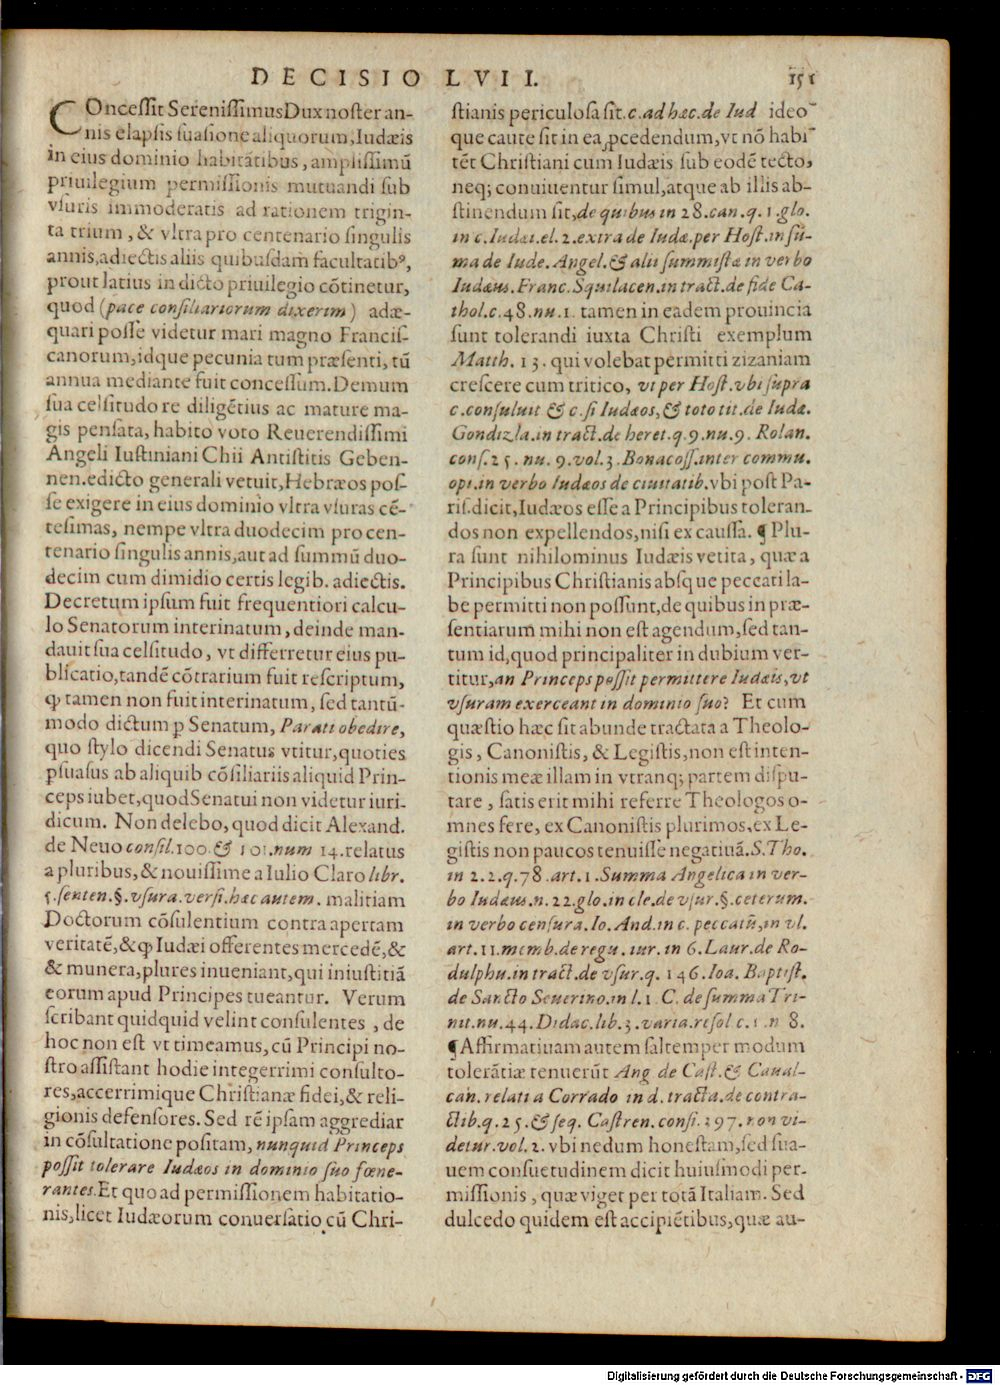 DECISIO LVII. 151
COncessit Serenissimus Dux noster an-
nis elapsis suasione aliquorum, Iudæis
in eius dominio habitãtibus, amplissimũ
priuilegium permissionis mutuandi sub
vsuris immoderatis ad rationem trigin-
ta trium, & vltra pro centenario singulis
annis, adiectis aliis quibusdam facultatibꝰ,
prout latius in dicto priuilegio cõtinetur,
quod (pace consiliariorum dixerim) adæ-
quari posse videtur mari magno Francis-
canorum, idque pecunia tum præsenti, tũ
annua mediante fuit concessum. Demum
sua celsitudo re diligẽtius ac mature ma-
gis pensata, habito voto Reuerendissimi
Angeli Iustiniani Chii Antistitis Geben-
nen. edicto generali vetuit, Hebræos pos-
se exigere in eius dominio vltra vsuras cẽ-
tesimas, nempe vltra duodecim pro cen-
tenario singulis annis, aut ad summũ duo-
decim cum dimidio certis legib. adiectis.
Decretum ipsum fuit frequentiori calcu-
lo Senatorum interinatum, deinde man-
dauit sua celsitudo, vt differretur eius pu-
blicatio, tandẽ cõtrarium fuit rescriptum,
ꝙ tamen non fuit interinatum, sed tantũ-
modo dictum ꝑ Senatum, Parati obedire,
quo stylo dicendi Senatus vtitur, quoties
ꝑsuasus ab aliquib cõsiliariis aliquid Prin-
ceps iubet, quod Senatui non videtur iuri-
dicum. Non delebo, quod dicit Alexand.
de Neuo consil. 100. & 101. num 14. relatus
a pluribus, & nouissime a Iulio Claro libr.
5. senten. §. vsura. versi. hæc autem. malitiam
Doctorum cõsulentium contra apertam
veritatẽ, & ꝙ Iudæi offerentes mercedẽ, &
& munera, plures inueniant, qui iniustitiã
eorum apud Principes tueantur. Verum
scribant quidquid velint consulentes, de
hoc non est vt timeamus, cũ Principi no-
stro assistant hodie integerrimi consulto-
res, accerrimique Christianæ fidei, & reli-
gionis defensores. Sed rẽ ipsam aggrediar
in cõsultatione positam, nunquid Princeps
possit tolerare Iudæos in dominio suo fœne-
rantes. Et quo ad permissionem habitatio-
nis, licet Iudæorum conuersatio cũ Chri-
stianis periculosa sit. c. ad hæc. de Iud ideo
que caute sit in ea ꝓcedendum, vt nõ habi
tẽt Christiani cum Iudæis sub eodẽ tecto,
neq; conuiuentur simul, atque ab illis ab-
stinendum sit, de quibus in 28. can. q. 1. glo.
in c. Iudæi. el. 2. extra de Iudæ. per Host. in sũ-
ma de Iude. Angel. & alii summistæ in verbo
Iudæus. Franc. Squilacen. in tract. de fide Ca-
thol. c. 48. nu. 1. tamen in eadem prouincia
sunt tolerandi iuxta Christi exemplum
Matth. 13. qui volebat permitti zizaniam
crescere cum tritico, vt per Host. vbi supra
c. consuluit & c. si Iudæos, & toto tit. de Iudæ.
Gondizla. in tract. de heret. q. 9. nu. 9. Rolan.
cons. 25. nu. 9. vol. 3. Bonacoss. inter commu.
opi. in verbo Iudæos de ciuitatib. vbi post Pa-
ris. dicit, Iudæos esse a Principibus toleran-
dos non expellendos, nisi ex caussa. ¶ Plu-
ra sunt nihilominus Iudæis vetita, quæ a
Principibus Christianis absque peccati la-
be permitti non possunt, de quibus in præ-
sentiarum mihi non est agendum, sed tan-
tum id, quod principaliter in dubium ver-
titur, an Princeps possit permittere Iudæis, vt
vsuram exerceant in dominio suo? Et cum
quæstio hæc sit abunde tractata a Theolo-
gis, Canonistis, & Legistis, non est inten-
tionis meæ illam in vtranq; partem dispu-
tare, satis erit mihi referre Theologos o-
mnes fere, ex Canonistis plurimos, ex Le-
gistis non paucos tenuisse negatiuã. S. Tho.
in 2. 2. q. 78. art. 1. Summa Angelica in ver-
bo Iudæus. n. 22. glo. in cle. de vsur. §. ceterum.
in verbo censura. Io. And. in c. peccatũ, in vl.
art. 11. memb. de regu. iur. in 6. Laur. de Ro-
dulphu. in tract. de vsur. q. 146. Ioa. Baptist.
de Sancto Seuerino. in l. 1. C. de summa Tri-
nit. nu. 44. Didac. lib. 3. varia. resol c. 1. n 8.
¶ Affirmatiuam autem saltem per modum
tolerãtiæ tenuerũt Ang de Cast. & Caual-
can. relati a Corrado in d. tracta. de contra-
ctib. q. 25. & seq. Castren. consi. 397. non vi-
detur. vol. 2. vbi nedum honestam, sed sua-
uem consuetudinem dicit huiusmodi per-
missionis, quæ viget per totã Italiam. Sed
dulcedo quidem est accipiẽtibus, quæ au-
Digitalisierung gefördert durch die Deutsche Forschungsgemeinschaft - DFG